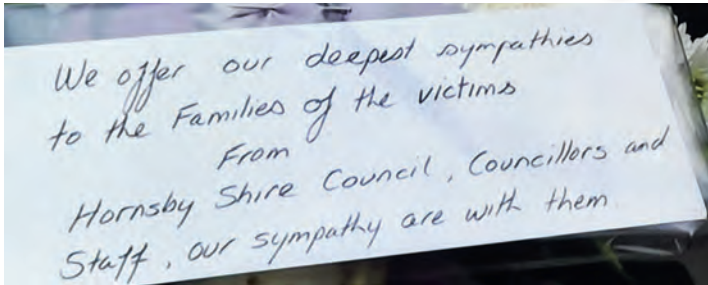 We offer our deepest sympathies
to the Families of the victims
From
Hornsby Shire Council, Councillors and
Staff, our sympathy are with them